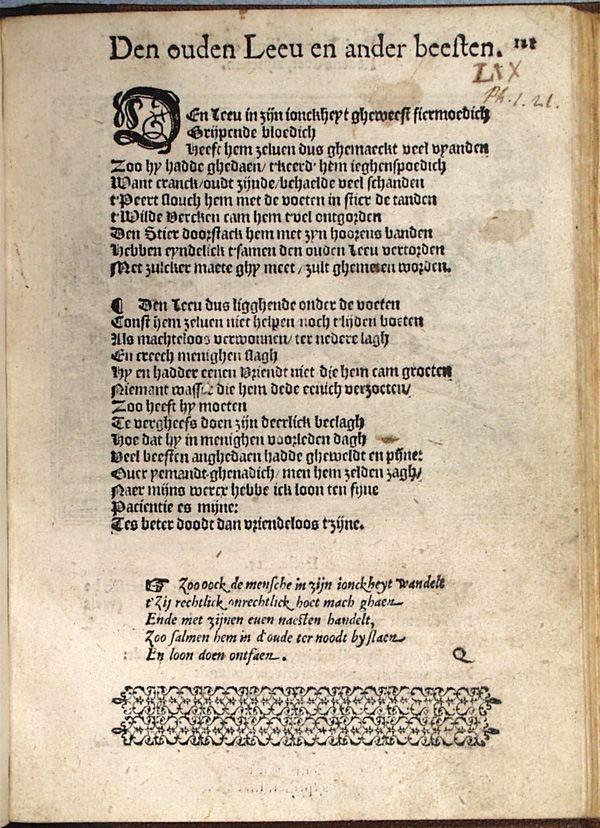 Den ouden Leeu en ander beesten. 121
LIX
Ph. 1. 21.
DEn Leeu in zijn ionckheyt gheweest fiermoedich
Grijpende bloedich
Heeft hem zeluen dus ghemaeckt veel vyanden
Zoo hy hadde ghedaen/ t'keerd' hem ieghenspoedich
Want cranck/ oudt zijnde/ behaelde veel schanden
t'Peert slouch hem met de voeten in stier de tanden
t'Wilde Vercken cam hem t'vel ontgorden
Den Stier doorstack hem met zyn hoorens banden
Hebben eyndelick t'samen den ouden Leeu vertorden
Met zulcker maete ghy meet/ zult ghemeten worden.
¶ Den Leeu dus ligghende onder de voeten
Const hem zeluen niet helpen noch t'lijden boeten
Als machteloos verwonnen/ ter nedere lagh
En creech menighen slagh
Hy en hadder eenen Vriendt niet die hem cam groeten
Niemant wasser die hem dede eenich verzoeten/
Zoo heeft hy moeten
Te vergheefs doen zijn deerlick beclagh
Hoe dat hy in menighen voorleden dagh
Veel beesten anghedaen hadde gheweldt en pijne:
Ouer yemandt ghenadich/ men hem zelden zagh/
Naer mijns wercx hebbe ick loon ten fijne
Pacientie es mijne:
Tes beter doodt dan vriendeloos t'zijne.
☞ Zoo oock de mensche in zijn ionckheyt wandelt
t'Zij rechtlick onrechtlick hoet mach ghaen
Ende met zijnen euen naesten handelt,
Zoo salmen hem in d'oude ter noodt by staen
En loon doen ontfaen.
Q